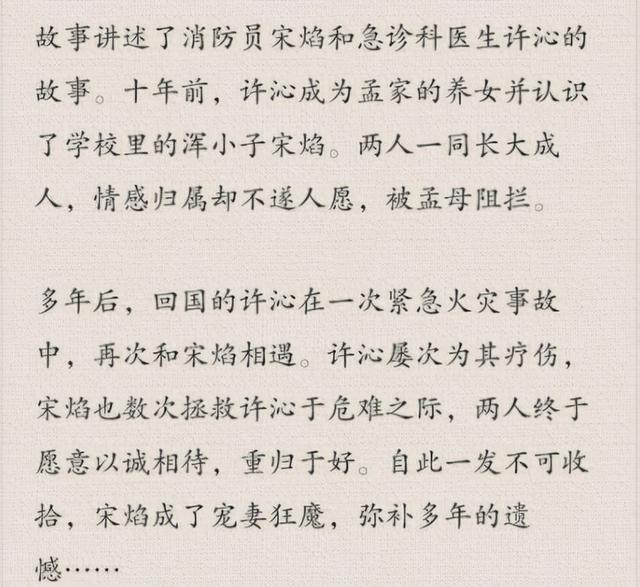 故事讲述了消防员宋焰和急诊科医生许沁的
故事。十年前，许沁成为孟家的养女并认识
了学校里的浑小子宋焰。两人一同长大成
人，情感归属却不遂人愿，被孟母阻拦。
多年后，回国的许沁在一次紧急火灾事故
中，再次和宋焰相遇。许沁屡次为其疗伤，
宋焰也数次拯救许沁于危难之际，两人终于
愿意以诚相待，重归于好。自此一发不可收
拾，宋焰成了宠妻狂魔，弥补多年的遗
憾……